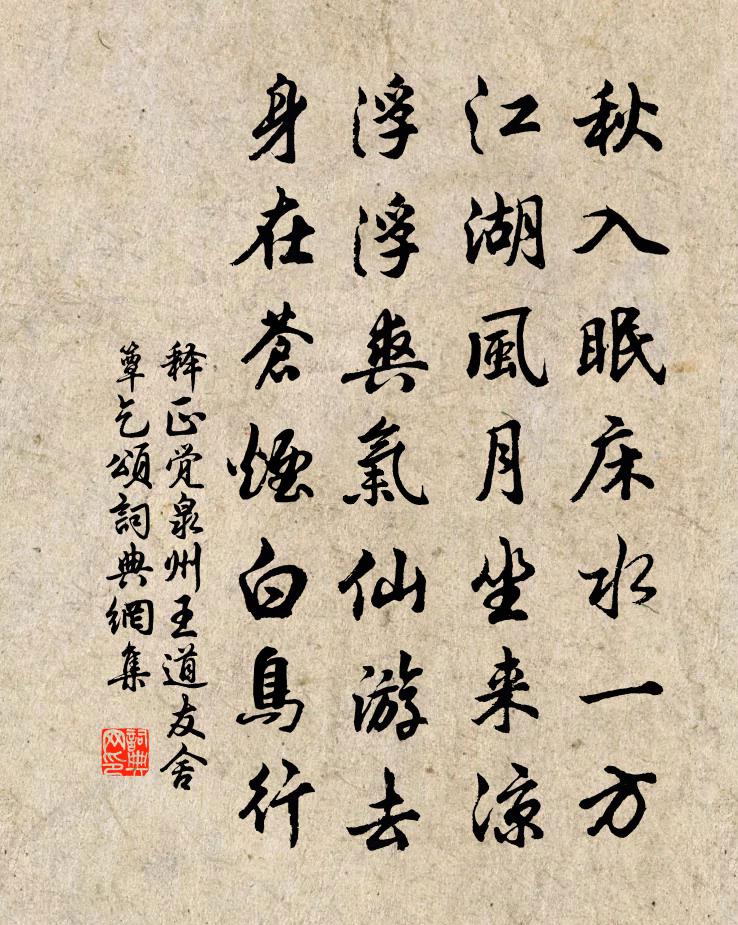 秋入眠床水一方
江湖風月坐来凉
浮浮爽氣仙游去
身在蒼煙白鳥行
释正觉泉州王道友舍
簟乞頌詞典網集
詞典
网印